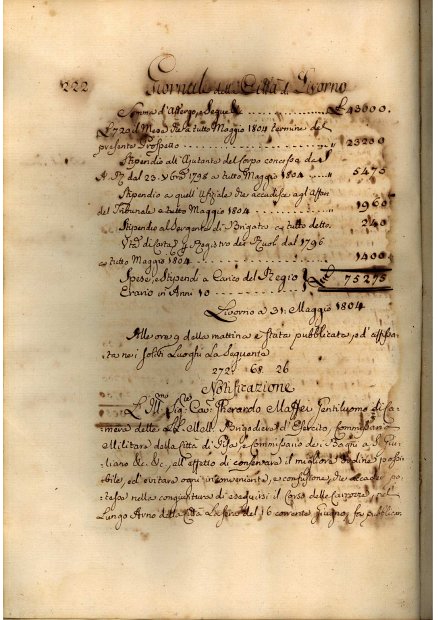 222 Giornale della Città di Livorno
Somma d'Affergo, e Segue ........ £ 43000.
£ 720 il Mese Pie a tutto Maggio 1804 termine del
presente Prospetto ........ „ 23200
Stipendio all' Ajutante del Corpo concessa da
A. R. dal 23. Xbre 1798 a tutto Maggio 1804 .... „ 5475
Stipendio a quell' Ufiziale che accudisce agl' affari
del Tribunale a tutto Maggio 1804 ........ „ 1960
Stipendio al Sergente di Brigata a tutto detto „ 240
di Carta, e Registro dei Ruoli dal 1796
a tutto Maggio 1804 ........ „ 1400
Spese, e Stipendi a Carico del Regio
Erario in Anni 10 ........ £ 75275
Livorno a 31. Maggio 1804
Alle ore 9 della mattina è stata pubblicata, ed affissa
ta nei soliti Luoghi La Seguente
272. 68. 26
Notificazione
L'Illmo Sig. Cav. Gherardo Maffei Gentiluomo di Ca-
mera delle LL. MM. Brigadiere d'Esercito, Commissario
Militare della Città di Pisa, e Commissario dei Bagni a S. Giu-
liano &c. &c., all' effetto di conservare il migliore ordine possi-
bile, ed evitare ogni inconveniente, e confusione, che accader po-
tesse nella congiuntura di eseguirsi il Corso delle Carrozze, nel
Lungo Arno della Città La sera del 16 corrente Giugno, fa pubblicare